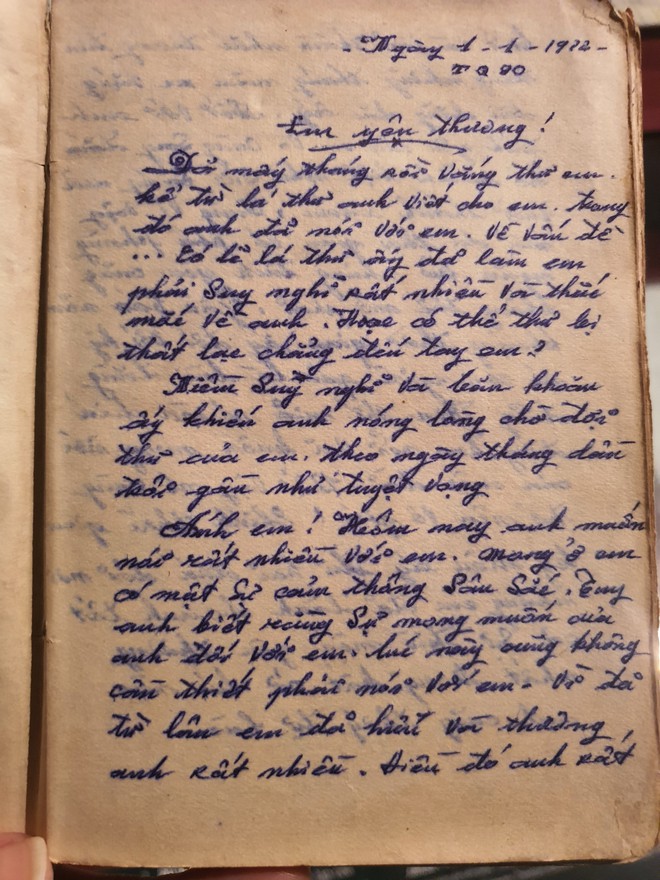 Ngày 1-1-1972-
TQ 80
Em yêu thương!
Đã mấy tháng rồi vắng thư em.
kể từ lá thư anh viết cho em. trong
đó anh đã nói với em. về vấn đề
... Có lẽ lá thư ấy đã làm em
phải suy nghĩ rất nhiều và thắc
mắc về anh. Hoặc có thể thư bị
thất lạc chẳng đến tay em?
Niềm suy nghĩ và băn khoăn
ấy khiến anh nóng lòng chờ đợi
thư của em. theo ngày tháng dần
trôi gần như tuyệt vọng
Ánh em! Hôm nay anh muốn
nói rất nhiều với em. mong ở em
có một sự cảm thông sâu sắc. Tuy
anh biết rằng sự mong muốn của
anh đối với em. lúc này cũng không
cần thiết phải nói với em - vì đã
từ lâu em đã hiểu và thương
anh rất nhiều. Điều đó anh rất